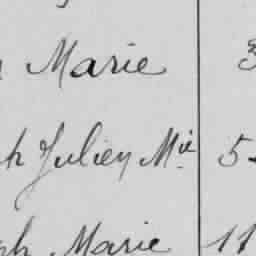 Marie 3
ph Julien Mie 5
ph Marie 11